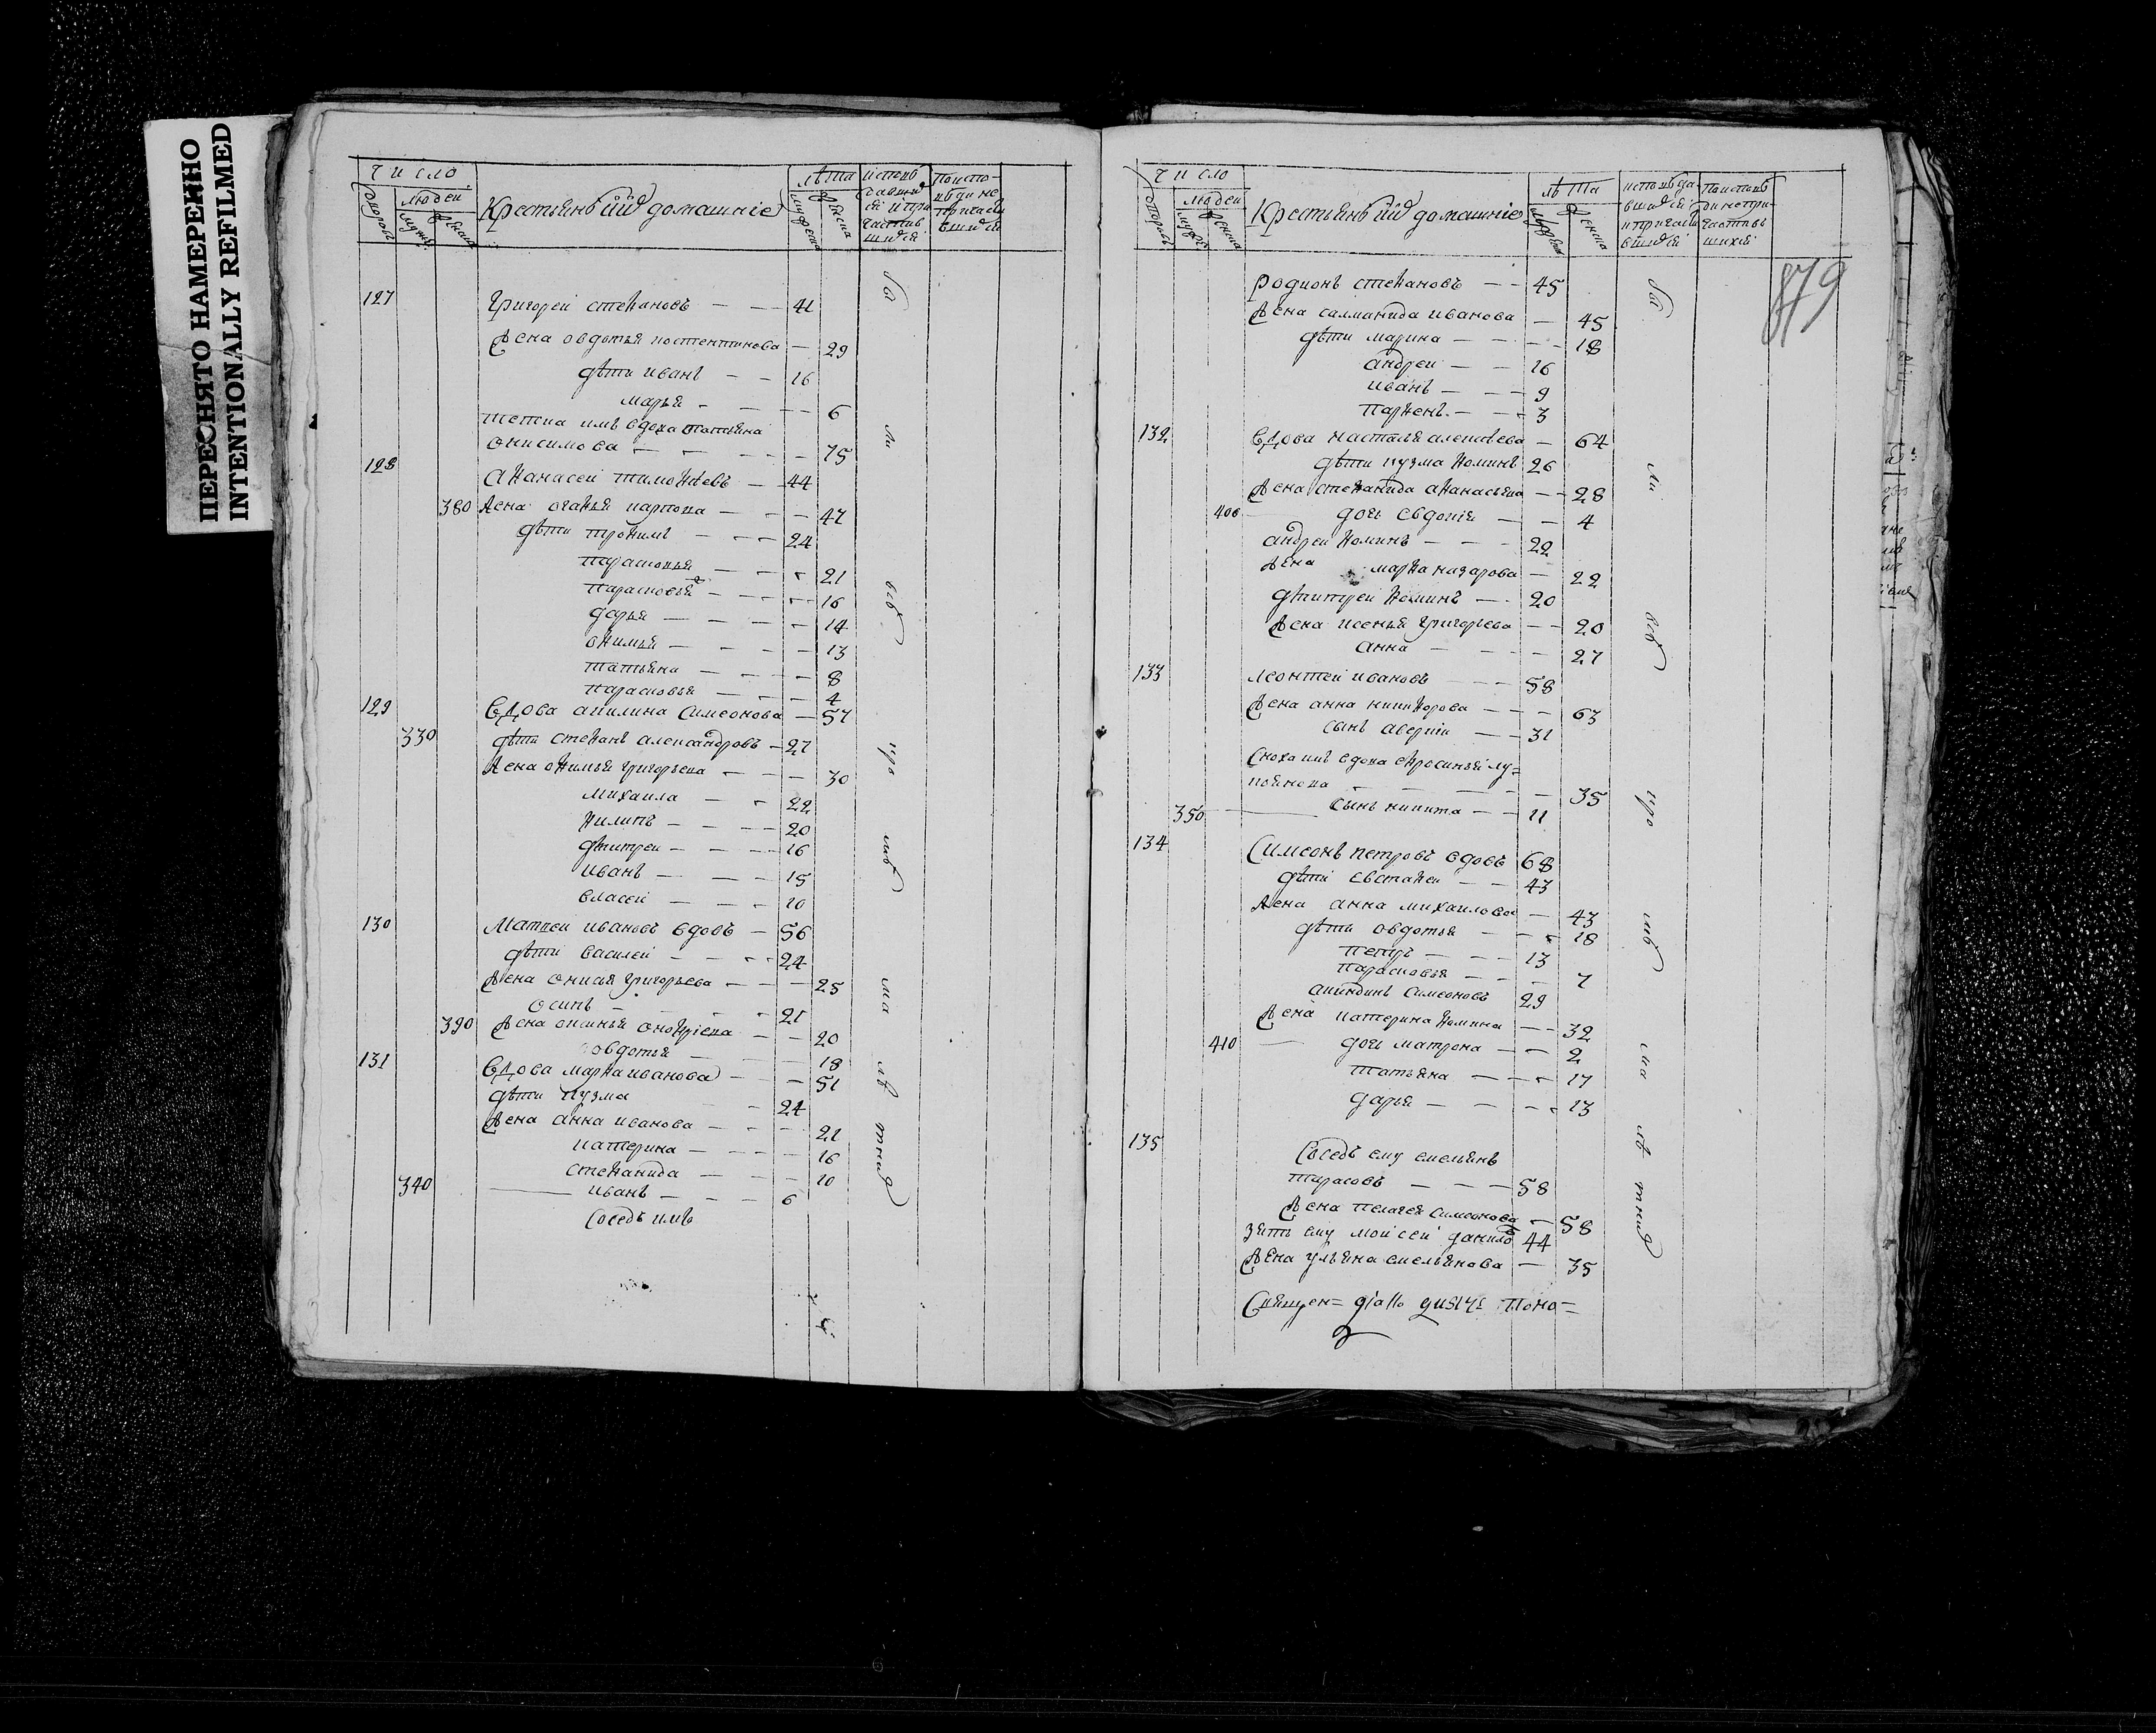 ПЕРЕСНЯТО НАМЕРЕННО
INTENTIONALLY REFILMED
число
людеи
Крестьяне и ихъ домашніе
лѣта
127 Григореи степановъ 41
Жена овдотья костентинова 29
дѣти иванъ 16
марья 6
тетка имъ вдова татьяна
онисимова 75
128 Афанасеи тимофѣевъ 44
380 Жена огафья карпова 47
дѣти трофимъ 24
парасковья 21
парасковья 16
дарья 14
офимья 13
татьяна 8
парасковья 4
129 Вдова акилина симеонова 57
330 дѣти стефанъ александровъ 27
Жена офимья григорьева 30
михаила 22
филипъ 20
дмитреи 16
иванъ 15
власеи 10
130 Матвеи ивановъ вдовъ 56
дѣти василеи 24
Жена григорьева 25
осипъ 21
390 Жена аксинья онофріева 20
овдотья 18
131 Вдова марфа иванова 51
дѣти кузма 24
Жена анна иванова 21
катерина 16
стефанида 10
340 иванъ 6
Соседъ имъ
число
людеи
Крестьяне и ихъ домашніе
лѣта
879
родионъ стефановъ 45
Жена саламанида иванова 45
дѣти марина 18
андреи 16
иванъ 9
парфенъ 3
132 Вдова насталья алексѣева 64
дѣти кузма фоминъ 26
Жена стефанида афанасьева 28
400 дочь евдокія 4
андреи фоминъ 22
Жена марфа назарова 22
дмитреи фоминъ 20
Жена ксенья григорьева 20
анна 27
133 леонтеи ивановъ 58
Жена анна никифорова 63
сынъ аверкіи 31
Сноха имъ вдова ефросинья лу=
коянова 35
350 сынъ никита 11
134 Симеонъ петровъ вдовъ 68
дѣти евстафеи 43
Жена анна михаилова 43
дѣти овдотья 18
петръ 13
парасковья 7
акиндинъ симеоновъ 29
Жена катерина фомина 32
410 дочь матрона 2
татьяна 17
дарья 13
135 Соседъ ему емельянъ
тарасовъ 58
Жена пелагея симеонова 58
зять ему моисеи данило 44
Жена ульяна емельянова 35